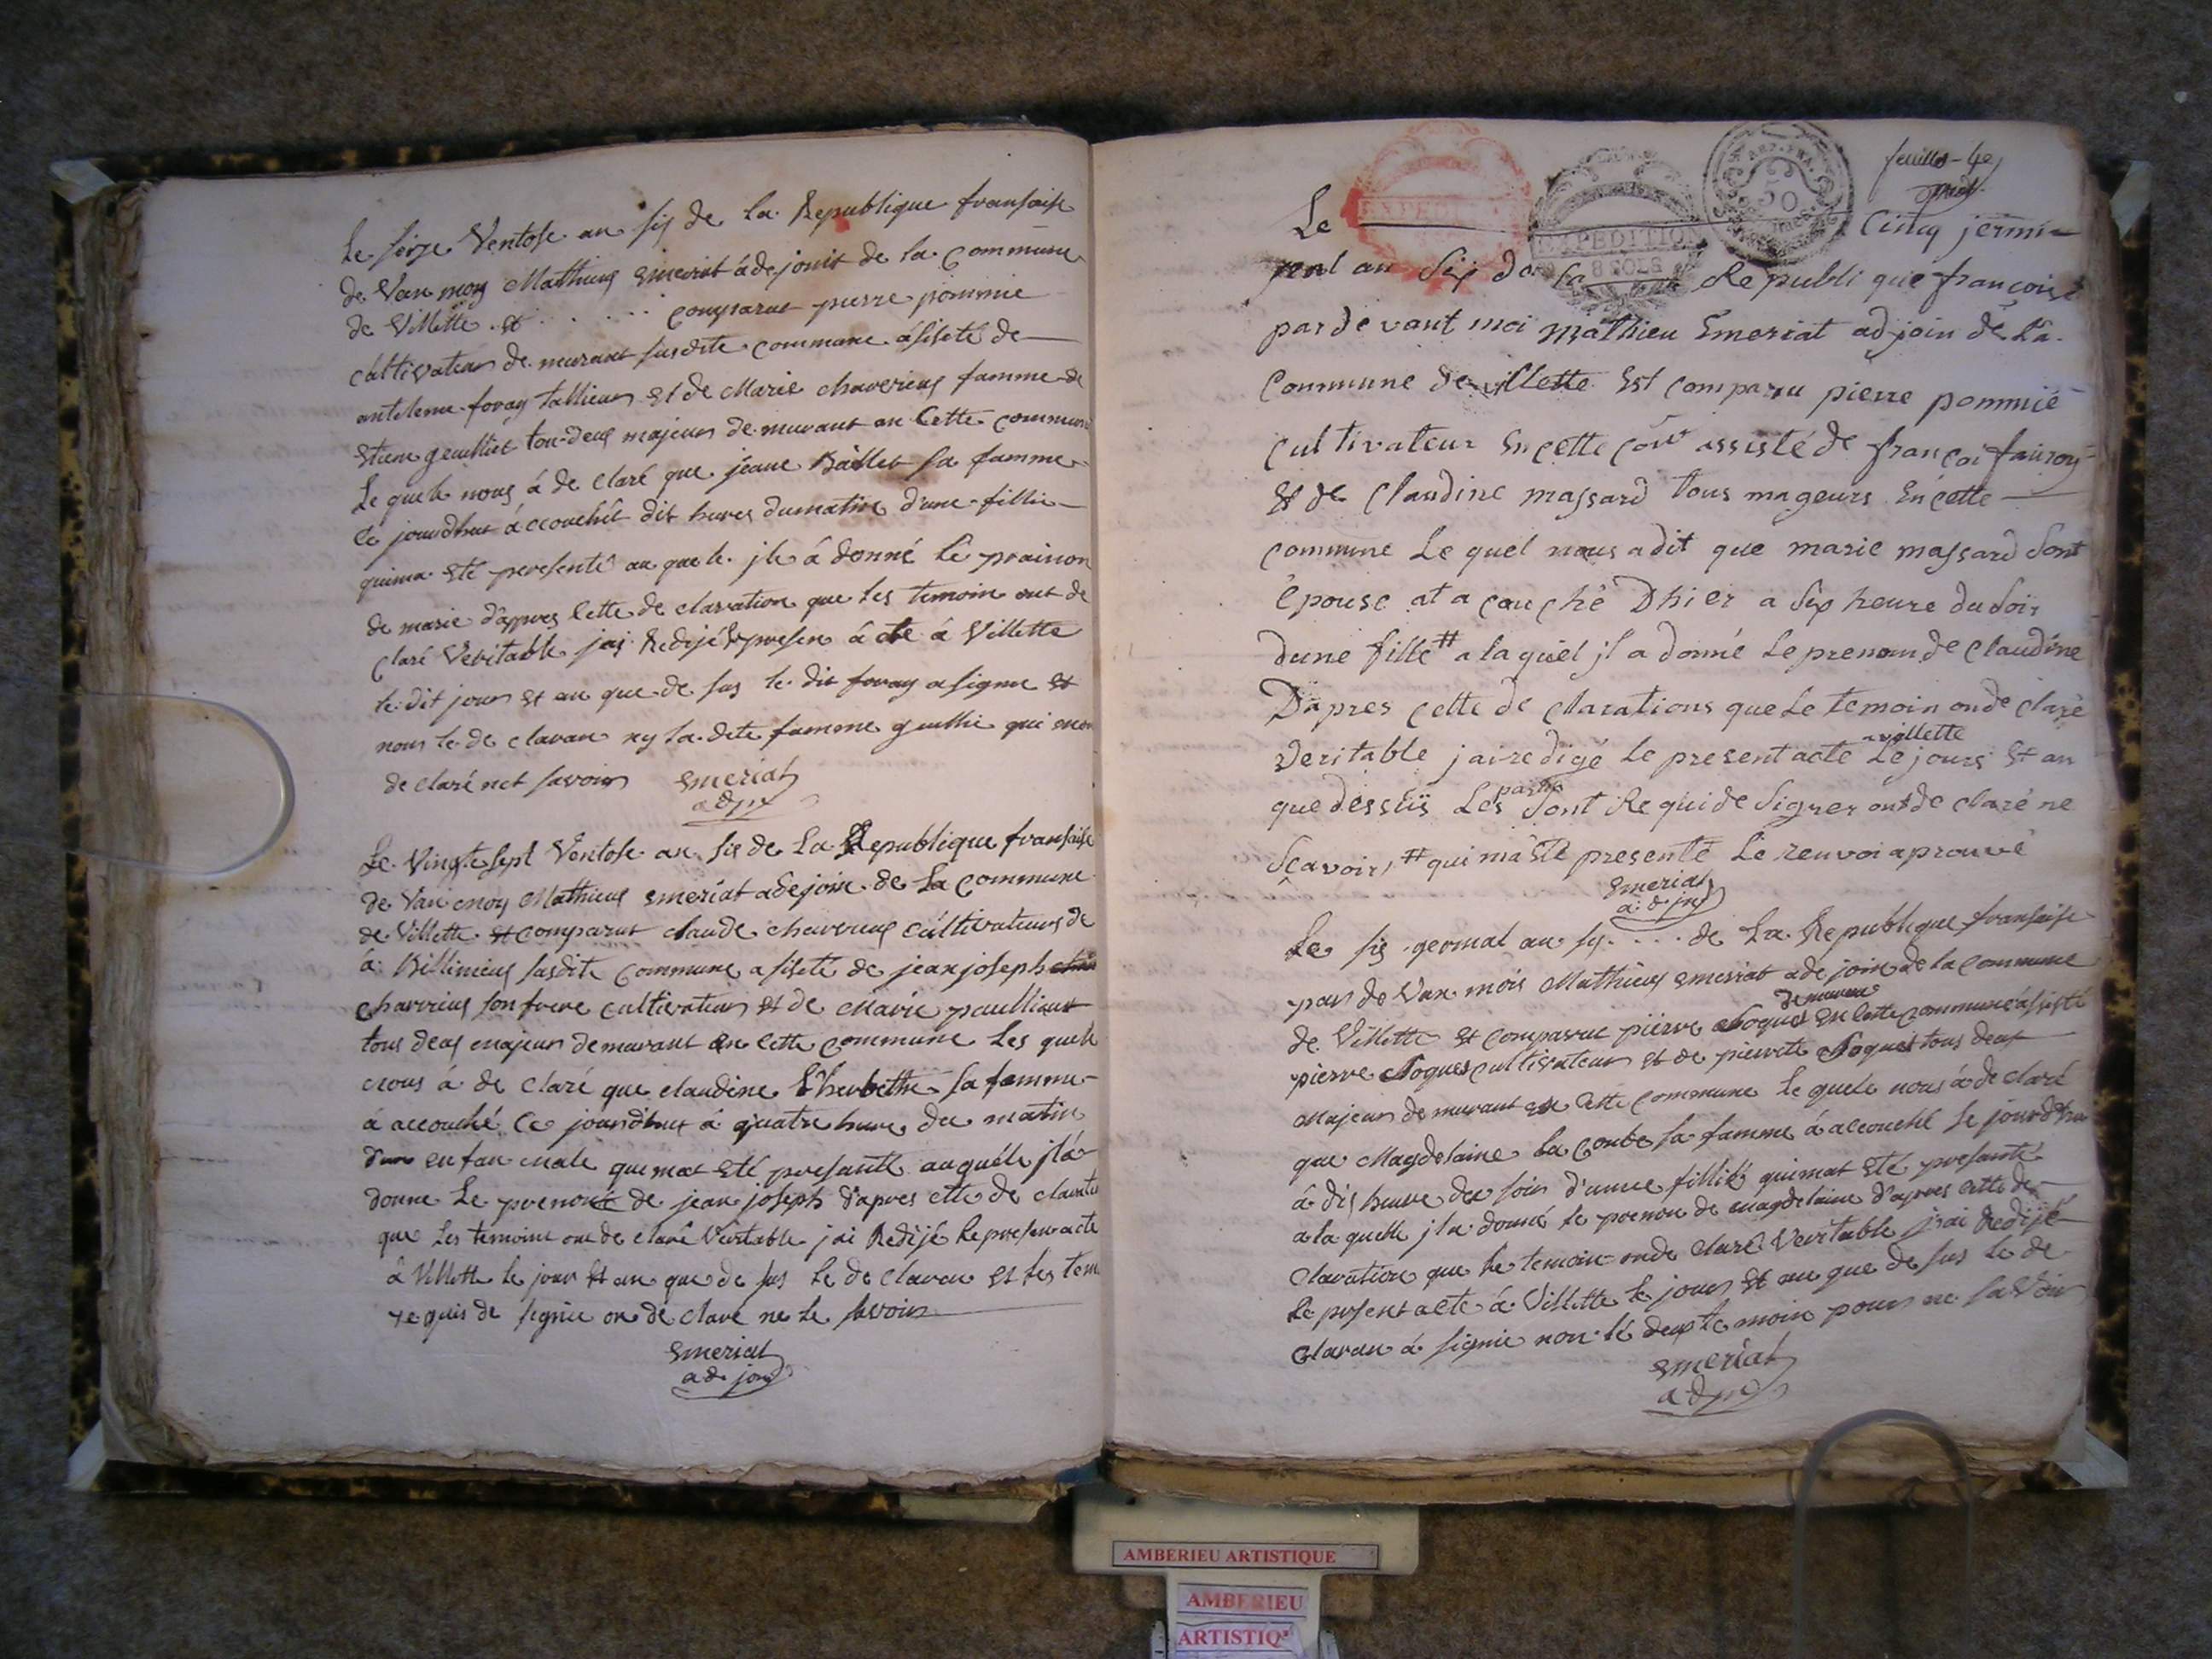 Le seize Ventose an sis de La Republique fransaise
de Van moy Mathieus Emeriat adejoint de la commune
de Villette et . . . . . comparut pierre pommie
cultivateur de murant susdite commune asisté de
antelemme foray tallieur et de Marie chaverieus famme de
Etiene geulliet tou deus majeurs de murant an Cette commune
Le quele nous à de claré que jeane Ballet sa famme
Ce jourdhui àccouchét dit heures dumatin d'une fillie
quima eté peresenté au quele jl à donné le prainon
de marie d'appres Cette de claration que les temoin ont de
claré Veritable jai Redijé Le presen à cte à Villette
le dit jour et an que de sus le dit foray a signié et
non le de claran ny la dite famme geullie qui mon
de claré net savoir
Emeriat
adj
Le Vingtesept Ventose an sis de La Republique fransaise
de Van moy Mathieus emeriat adejoin de La commune
de Villette et comparut claude chaverieus cultivateurs de
à Billinieus susdite commune asisté de jean joseph
charvieus son frere cultivateur et de Marie paullieux
tous deus majeurs demurant en Cette commune Les quele
nous à de claré que claudine L'herbette sa famme
à accouché Ce jourdhui à quatre heure du matin
dun enfan male quimat eté presanté auquele jl à
donne Le prenom de jean joseph d'apres cette de claratio
que Les temoins on de claré Veritable jai Redijé Le presen acte
à Villette le jour et an que de sus Le de claran et Les tem
requis de signie on de claré ne le savoir
Emeriat
adejoin
feuillet 4e
Le Cinq jermi
nal an Six de la Republique françoise
EXPEDITION
EXPEDITION
8 SOLS
REP. FRA.
50
par devant moi Mathieu Emeriat adjoin de La
Commune de villette Est comparu pierre pommié
cultivateur En cette com assisté de françoi fauroy
et de Claudine massard tous mageurs En cette
commune Le quel nous a dit que marie massard Sont
épouse at a couché Dhier a Six heure du Soir
dune fille # a laquel jl a donné Le prenom de Claudine
Dapres cette de clarations que Le temoin on de claré
veritable jai redigé Le present acte a villette Le jours Et an
que dessus Les partis Sont Requi de Signer ont de claré ne
Sçavoir, # qui ma Eté presenté Le renvoi aprouvé
Emeriat
adj
Le sis germal an sis . . . . de La Republique fransaise
par de Van mois Mathieus emeriat ade join de la commune
de Villette et comparut pierre Noques demurant en Cette commune asisté
pierre Noques cultivateur et de pierrette Noques tous deux
Majeurs demurant en Cette commune le quele nous à de claré
que Magdelaine La Conbe sa famme à accouché Le jourdhui
à dis heure du soir d'unne fillie quimat eté presanté
a la quelle jl a donné le prenon de magdelaine d'apres Cette de
claration que Le temoin on de claré Veritable j'ai Redijé
Le presen acte à Villette le jour et an que de sus Le de
claran à signie non lé deux te moin pour ne savoir
Emeriat
adj
AMBERIEU ARTISTIQUE
AMBERIEU
ARTISTIQ